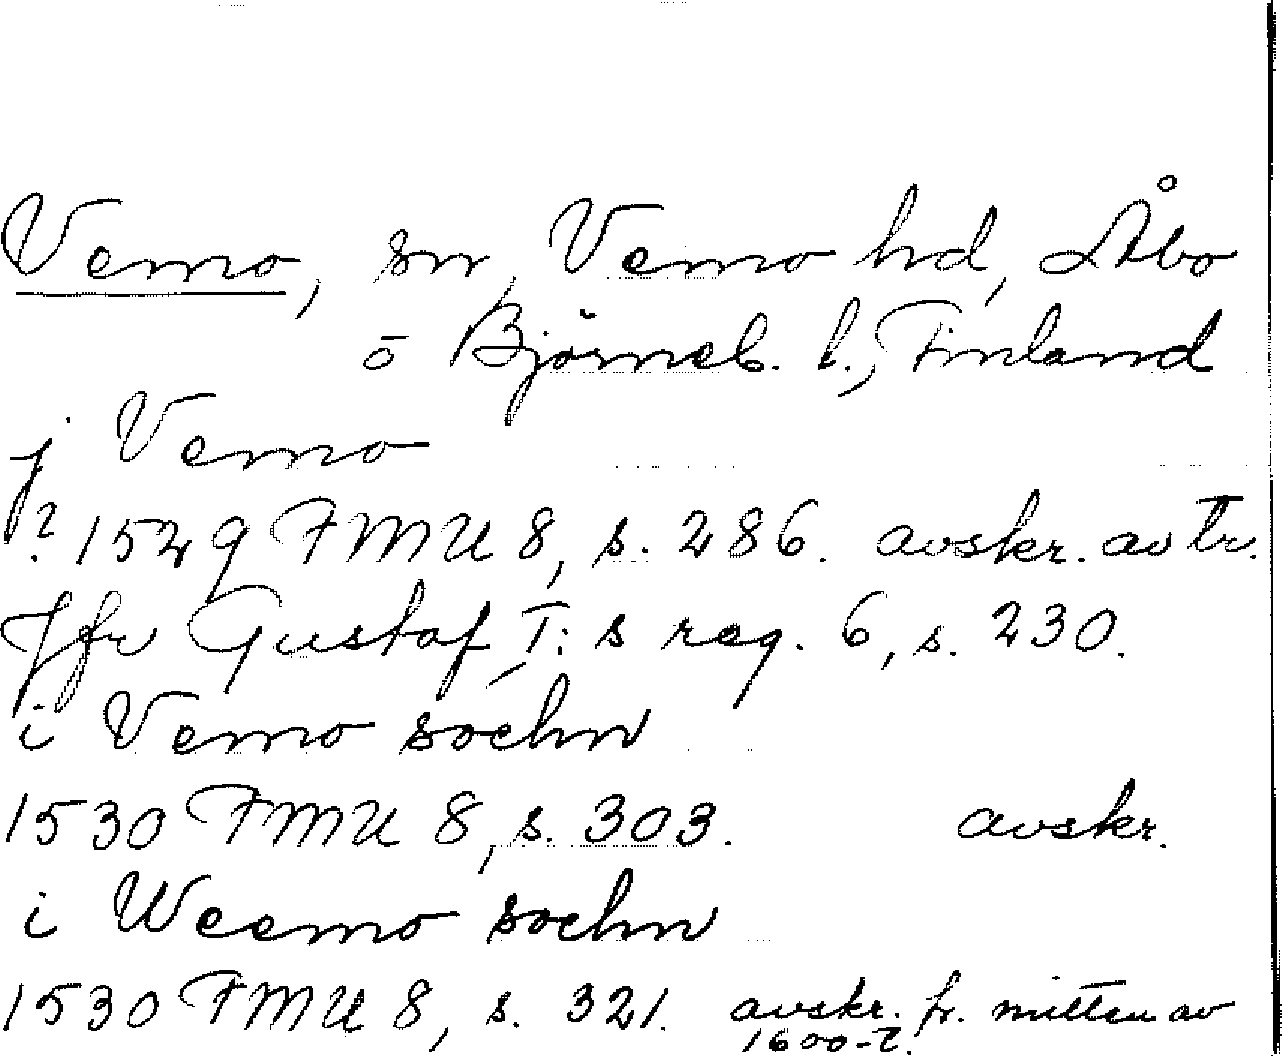 Vemo, sn, Vemo hd, Åbo
o Björneb. l., Finland
j Vemo
? 1529 FMU 8, s. 286. avskr. av tr.
Jfr Gustaf I:s reg. 6, s. 230.
i Vemo sochn
1530 FMU 8, s. 303. avskr.
i Weemo sochn
1530 FMU 8, s. 321. avskr. fr. mitten av
1600-t.